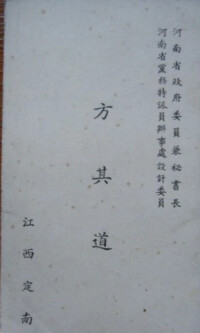 河南省政府委員兼秘書長
河南省黨務特派員辦事處設計委員
方其道
江西定南